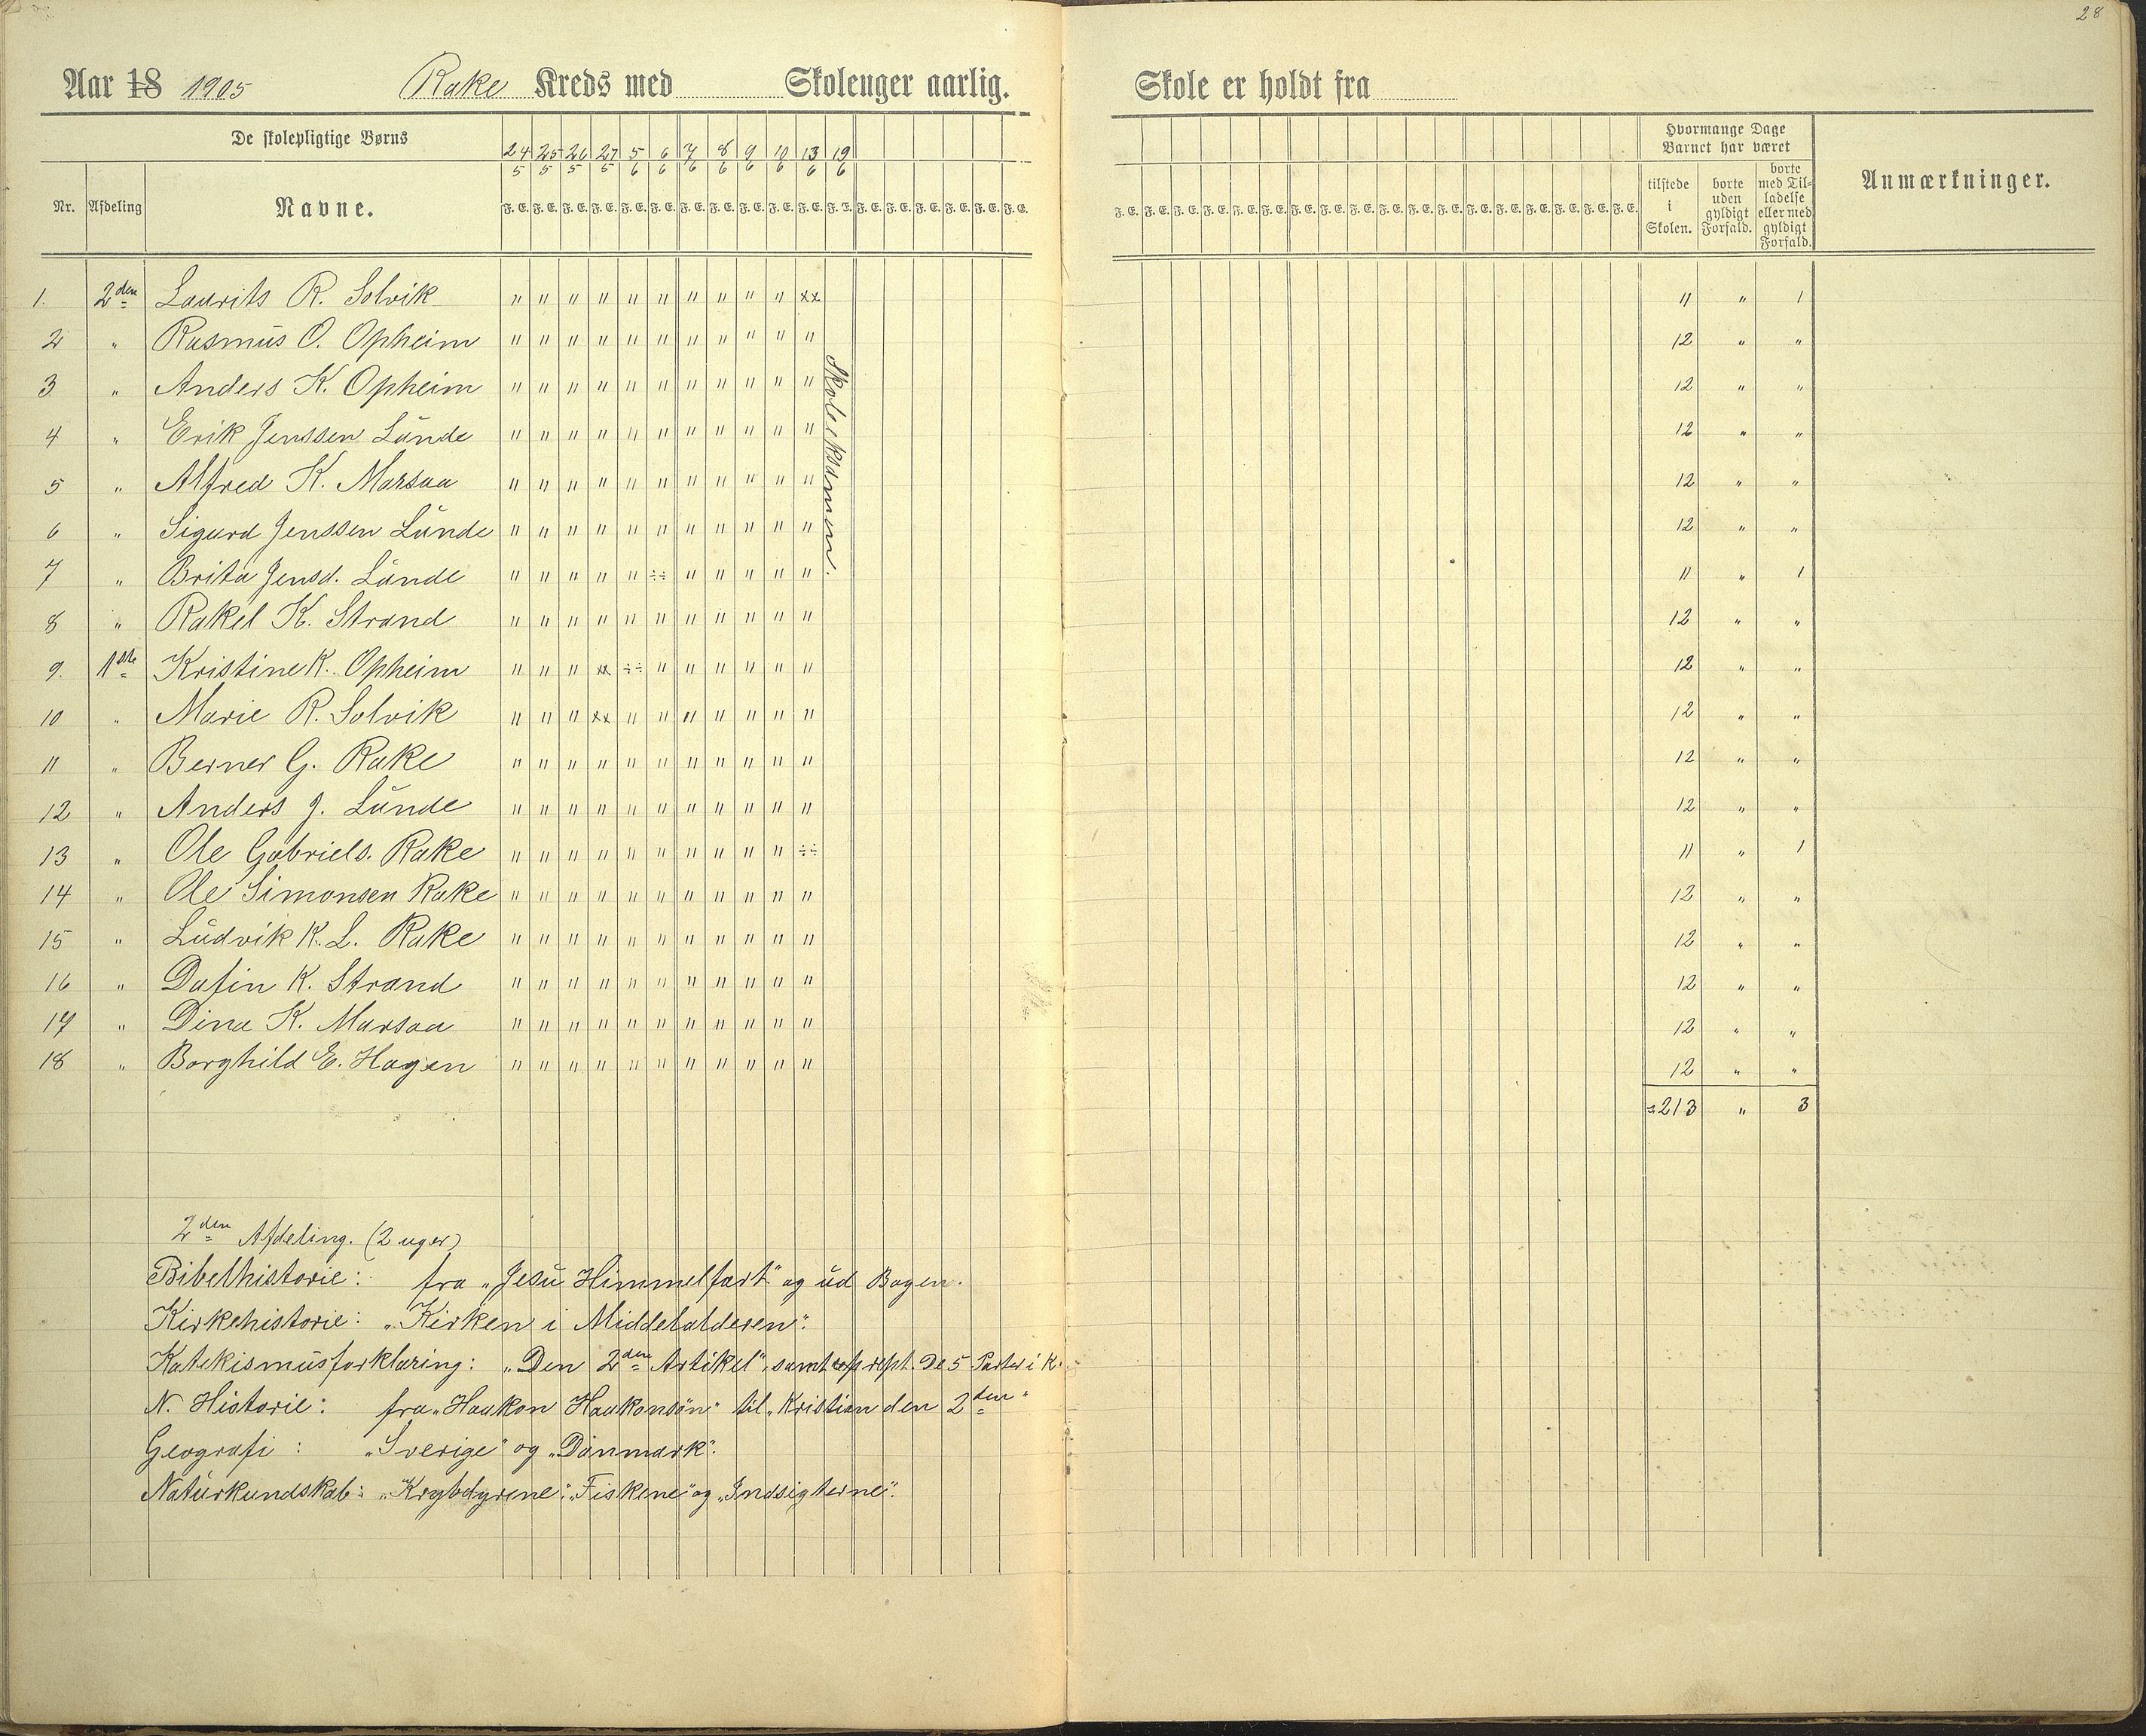 28
Aar 18 1905 Rake Kreds med Skoleuger aarlig. Skole er holdt fra
De skolepligtige Børns
Hvormange Dage Barnet har været
Anmærkninger.
24/5 25/5 26/5 27/5 5/6 6/6 7/6 8/6 9/6 10/6 13/6 19/6
Nr. Afdeling Navne.
F. E. F. E. F. E. F. E. F. E. F. E. F. E. F. E. F. E. F. E. F. E. F. E. F. E. F. E. F. E. F. E. F. E. F. E.
F. E. F. E. F. E. F. E. F. E. F. E. F. E. F. E. F. E. F. E. F. E. F. E. F. E. F. E. F. E. F. E. F. E. F. E.
tilstede i Skolen.
borte uden gyldigt Forfald.
borte med Tilladelse eller med gyldigt Forfald.
1. 2den Laurits R. Solvik " " " " " " " " " " xx 11 " 1
2 " Rasmus O. Opheim " " " " " " " " " " " 12 " "
3 " Anders K. Opheim " " " " " " " " " " " 12 " "
4 " Erik Jenssen Lunde " " " " " " " " " " " 12 " "
5 " Alfred K. Marsaa " " " " " " " " " " " 12 " "
6 " Sigurd Jenssen Lunde " " " " " " " " " " " 12 " "
7 " Brita Jensd. Lunde " " " " " ÷÷ " " " " " 11 " 1
8 " Rakel K. Strand " " " " " " " " " " " 12 " "
9. 1ste Kristine K. Opheim " " " xx ÷÷ " " " " " " 12 " "
10 " Marie R. Solvik " " " xx " " " " " " " 12 " "
11 " Berner G. Rake " " " " " " " " " " " 12 " "
12 " Anders J. Lunde " " " " " " " " " " " 12 " "
13 " Ole Gabriels. Rake " " " " " " " " " " ÷÷ 11 " 1
14 " Ole Simonsen Rake " " " " " " " " " " " 12 " "
15 " Ludvik K. L. Rake " " " " " " " " " " " 12 " "
16 " Dafin K. Strand " " " " " " " " " " " 12 " "
17 " Dina K. Marsaa " " " " " " " " " " " 12 " "
18 " Borghild E. Hagen " " " " " " " " " " " 12 " "
Skoleeksamen.
=213 " 3
2den Afdeling. (2 uger)
Bibelhistorie: fra „Jesu Himmelfart" og ud Bogen.
Kirkehistorie: „Kirken i Middelalderen".
Katekismusforklaring: „Den 2den Artikel", samt rept. De 5 Parter i K.
N. Historie: fra „Haakon Haakonsøn" til „Kristian den 2den"
Geografi: „Sverige" og „Danmark".
Naturkundskab: „Krybdyrene", „Fiskene" og „Indsigterne".